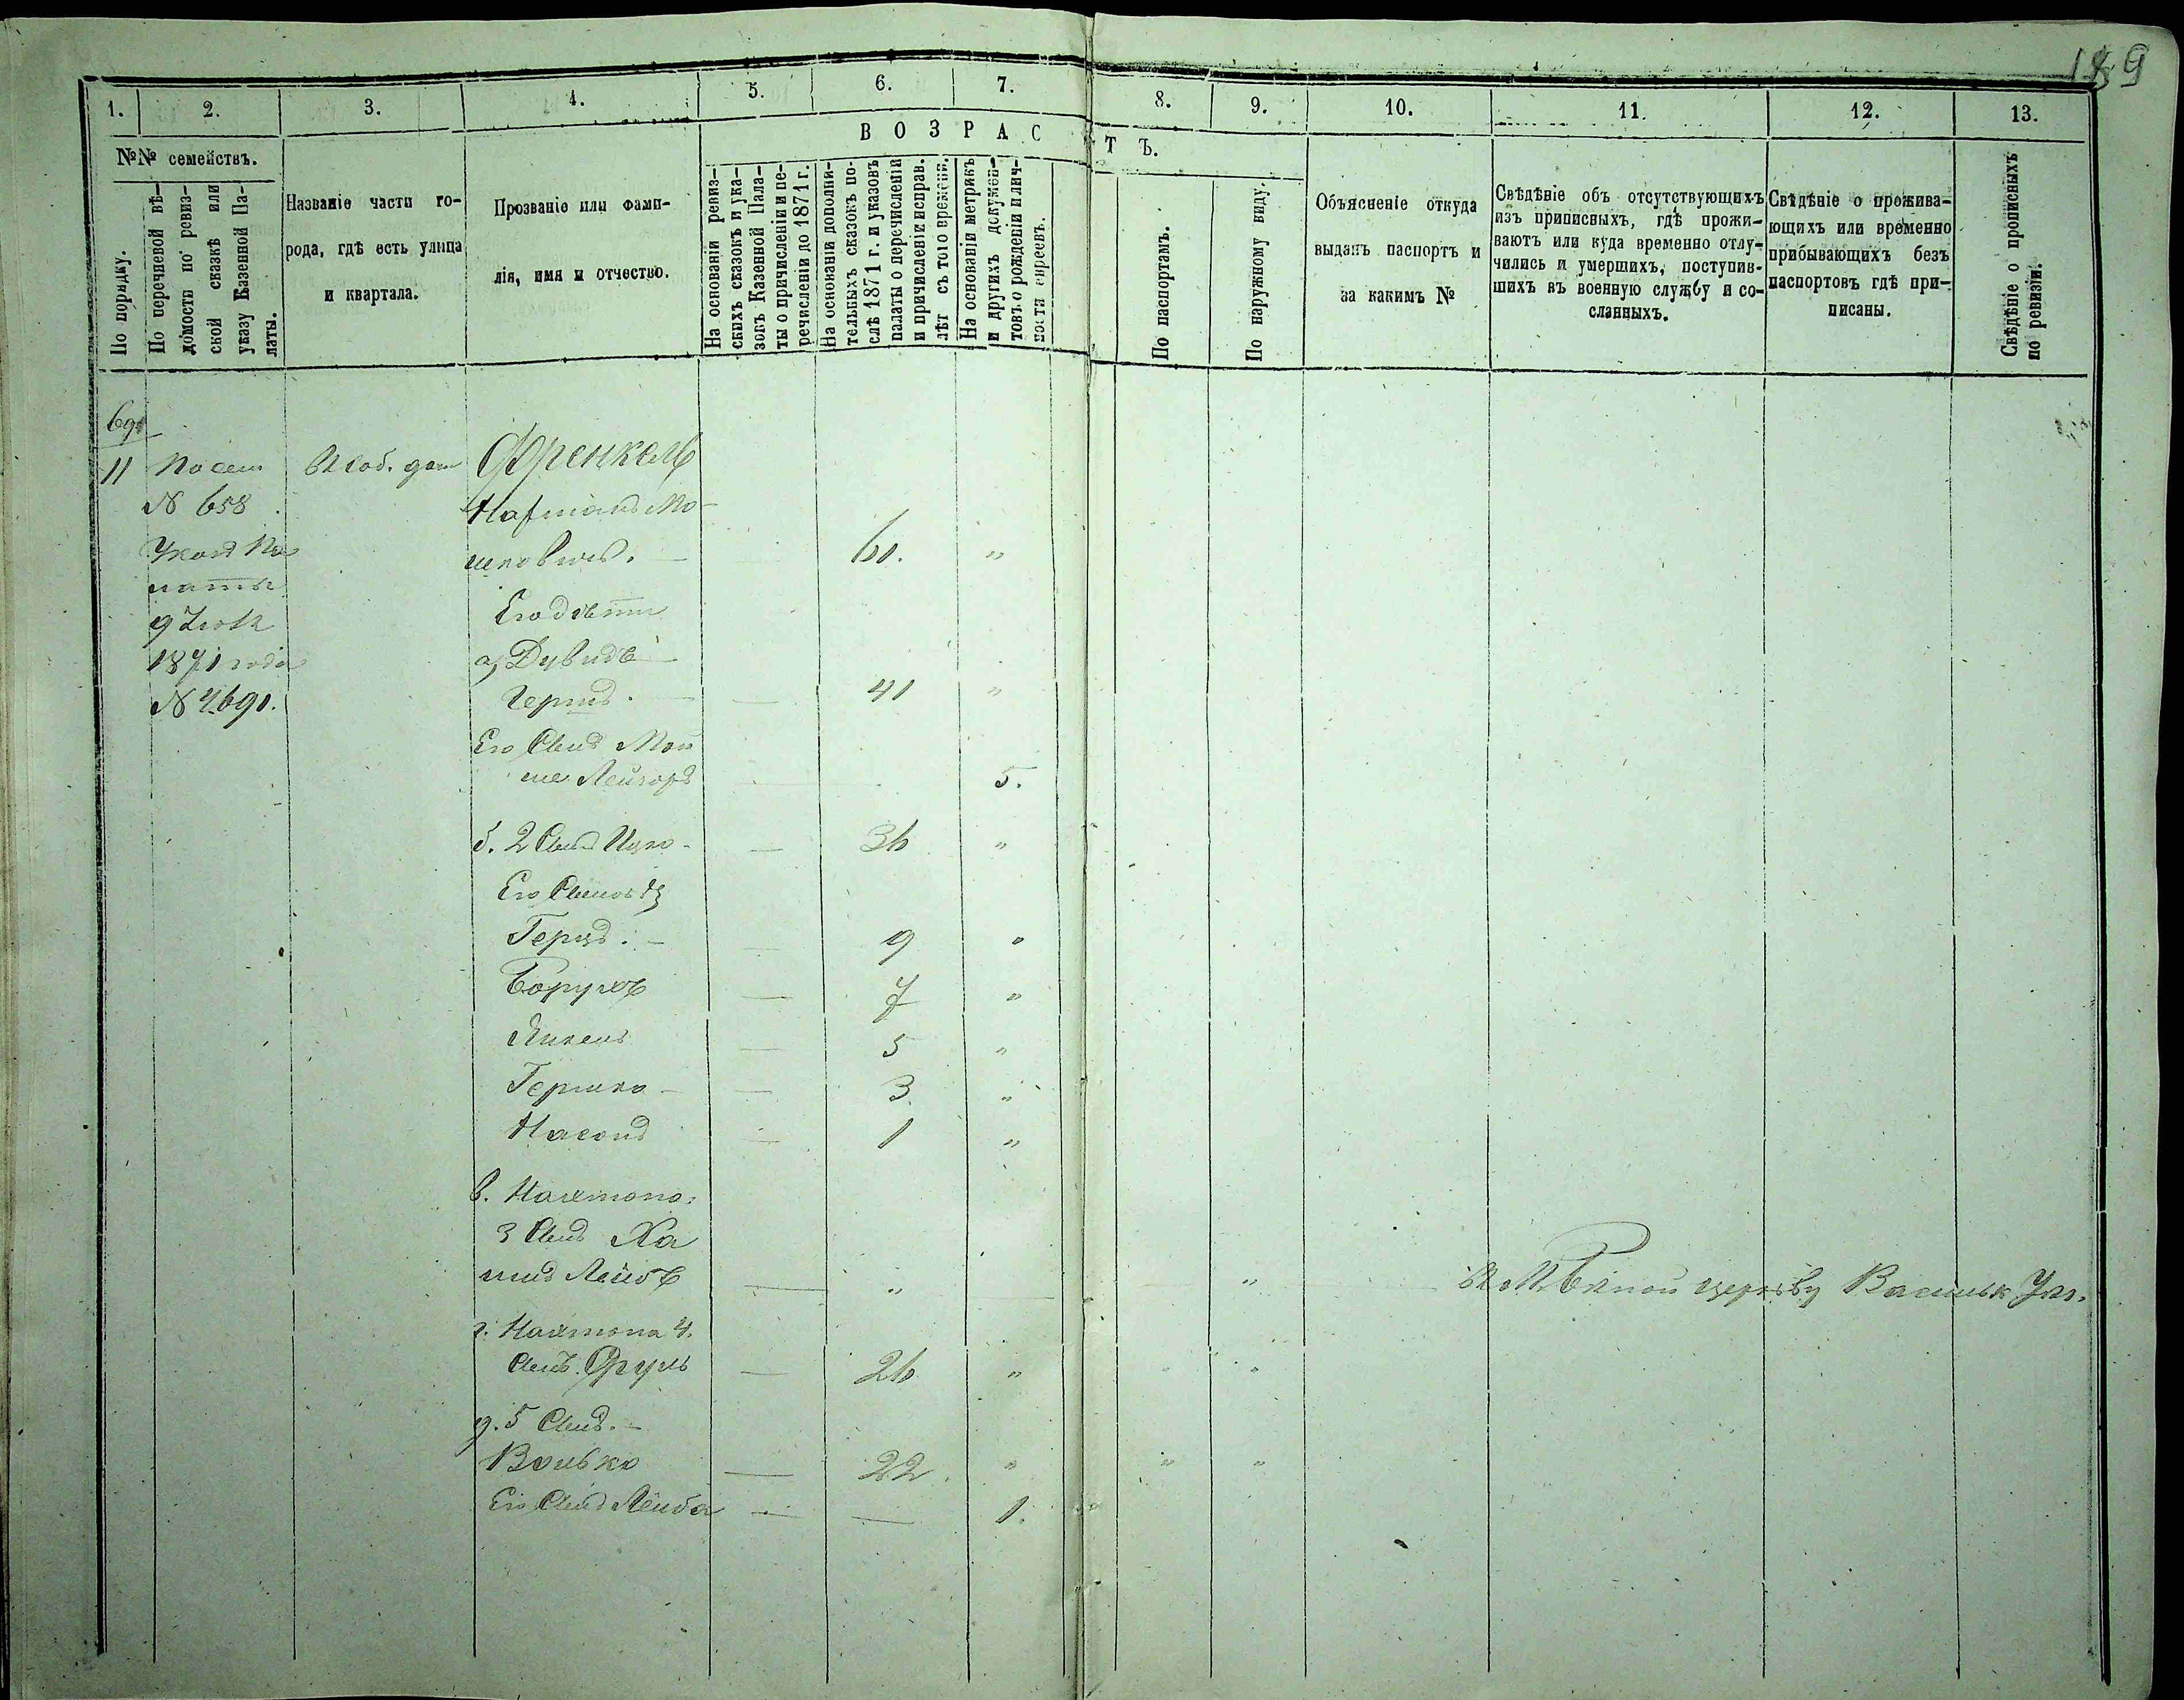 189
1. 2. 3. 4. 5. 6. 7. 8. 9. 10. 11. 12. 13.
№№ семействъ.
По порядку.
По перечневой вѣ-
домости по ревиз-
ской сказкѣ или
указу Казенной Па-
латы.
Названіе части го-
рода, гдѣ есть улица
и квартала.
Прозваніе или фами-
лія, имя и отчество.
ВОЗРАСТЪ.
На основаніи ревиз-
скихъ сказокъ и ука-
зовъ Казенной Пала-
ты о причисленіи и пе-
речисленіи до 1871 г.
На основаніи дополни-
тельныхъ сказокъ по-
слѣ 1871 г. и указовъ
палаты о перечисленіи
и причисленіи исправ.
лѣт съ того времени.
На основаніи метрикъ
и другихъ докумен-
товъ о рожденіи и лич-
ности евреевъ.
По паспортамъ.
По наружному виду.
Объясненіе откуда
выданъ паспортъ и
за какимъ №
Свѣдѣніе объ отсутствующихъ
изъ приписныхъ, гдѣ прожи-
ваютъ или куда временно отлу-
чились и умершихъ, поступив-
шихъ въ военную службу и со-
сланныхъ.
Свѣдѣніе о прожива-
ющихъ или временно
прибывающихъ безъ
паспортовъ гдѣ при-
писаны.
Свѣдѣніе о прописныхъ
по ревизіи.
11 По сем В соб. дом Френкель
№ 658
Указ Па
латы
1871 года
Мо-
шковичъ. 60. "
Его дѣти
а, Дувидъ
Гершъ. 41 "
Его Сынъ Мой
ше Лейзоръ 5.
б. 2 Сынъ Ицко 36 "
Его Сыновья
Герцъ. 9 "
Борухъ 7 "
Янкель 5 "
Гершко 3 "
Насонъ 1 "
в. Нахмона
3 Сынъ Ха
имъ Лейбъ " " В М. Бѣлой церкву Васильк Уѣз.
г. Нахмона 4.
Сынъ Сруль 26 " " "
д. 5 Сынъ.
Волько 22. " " "
Его Сынъ Лейба 1.